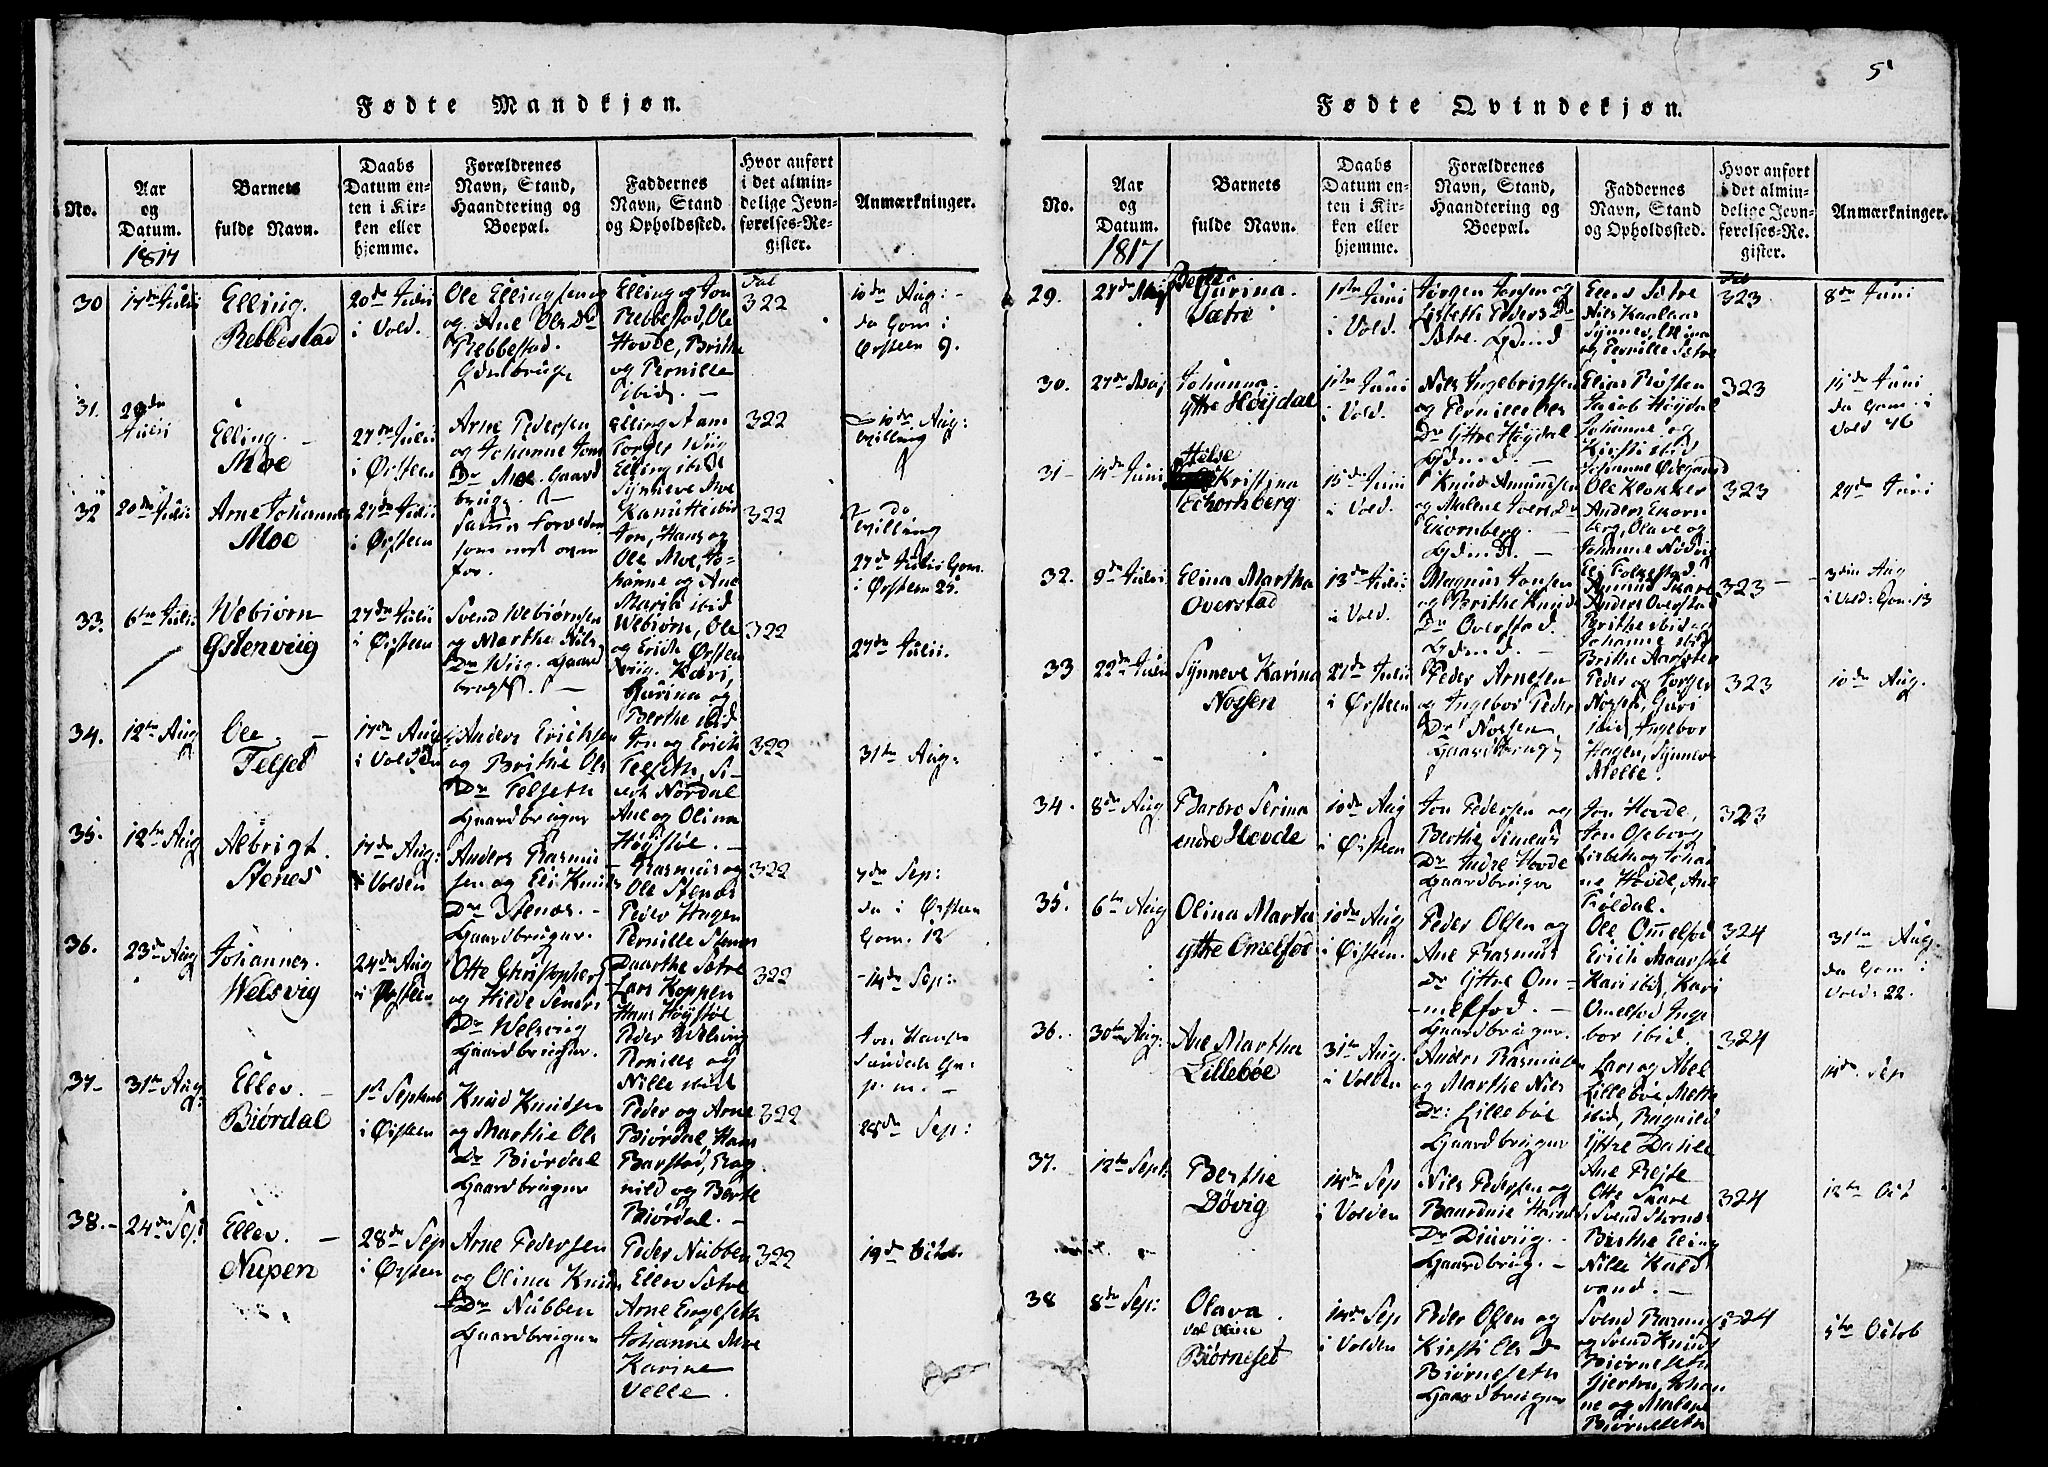 Fødte Mandkjøn.
No.
Aar
og
Datum.
1817
Barnets
fulde Navn.
Daabs
Datum en-
ten i Kir-
ken eller
hjemme.
Forældrenes
Navn, Stand,
Haandtering og
Boepæl.
Faddernes
Navn, Stand
og Opholdssted.
Hvor anført
i det almin-
delige Jevn-
førelses-Re-
gister.
Anmærkninger.
30
17de Julii
Elling.
Rebbestad
20de Julii
i Vold.
Ole Ellingsen
og Ane Ols Dr
Rebbestad.
Elling og Jon
Rebbestad, Ole
Hovde, Brithe
og Pernille
ibid. —
Fol
322
10de Aug:
da Gom i
Ørsteen 9.
31.
Julii
Elling. —
Moe
27de Julii
i Ørsteen
Arne Pedersen
og Johanne Jons
Dr Moe. Gaard
brug. —
Elling Aam
Torger Wiig
Elling ibid
Synneve Moe
322
10de Aug:
32
20de Julii
Arne Johannes
Moe
27de Julii
i Ørsteen
Samme Forældre
som næst oven
for.
Kanutte ibid
Jon, Hans og
Ole Moe, Jo-
hanne og Ane
Maria ibid
322
27de Julii Gom.
i Ørsteen 25.
33.
6te Julii
Webiørn
Ystenviig
27de Julii
i Ørsteen
Svend Webiørnsen
og Marthe Nils
Dr Wiig. Gaard
brug. —
Webiørn, Ole
og Erich Østen
viig. Kari,
Gurina og
Berthe ibid
322
27de Julii.
34.
12te Aug
Ole —
Felset
17de Aug
i Volden
Anders Erichsen
og Brithe Ols
Dr Felseth
Gaardbruger
Jon og Erich
Felseth, Si-
Nordal
Ane og Olina
Høgistøe. —
322
31te Aug:
35.
12te Aug
Albrigt.
Stenes
17de Aug:
i Volden
Anders Rasmu-
sen og Eli Knuds
Dr Stenes. —
Gaardbruger.
Rasmus og
Ole Stenes
Peder Hagen
Pernille Stenes
322
7de Sep:
da i Ørsteen
Gom. 12
36.
23de Aug
Johannes.
Welsvig
24de Aug
i Ørsteen
Otte Christophers
og Hilde Simens
Dr Welsviig
Gaardbruger.
Daarthe Sætre
Lars Koppen
Hans Høystøe
Peder Welsviig
Pernille og
Nille ibid
322
14de Sep:
37-
31te Aug
Ellev. —
Biørdal
1st Septemb
i Ørsteen
Knud Knudsen
og Marthe Ols
Dr Biørdal
Gaardbruger
Peder og Arne
Biørdal, Hans
Barstad, Rag-
nild og Berte
Biørdal. —
322
Jon Hansen
28de Sep:
38.-
24de Sep:
Ellev. —
Nupen
28de Sep
i Ørsteen
Arne Pedersen
og Olina Knuds
Dr Nubben
Gaardbruger
Peder Nubben
Ellev Sætre
Arne Engeseth
Johanne Moe
Karine
Velle.
322
19de Octob.
5
Fødte Qvindekjøn.
No.
Aar
og
Datum.
1817
Barnets
fulde Navn.
Daabs
Datum en-
ten i Kir-
ken eller
hjemme.
Forældrenes
Navn, Stand,
Haandtering og
Boepæl.
Faddernes
Navn, Stand
og Opholdssted.
Hvor anført
i det almin-
delige Jevn-
førelses-Re-
gister.
Anmærkninger.
29.
27de Maj
Gurina.
Sætre
1ste Juni
i Vold.
Jørgen Jonsen og
Lisbeth Peders Dr
Sætre.
Ellev Sætre
Nils Kaalaas
Synnev, Elina
og Pernille Sætre
Fol
323
8de Juni
30.
27de Maj
Johanna.
Yttre Høydal
1ste Juni
i Vold.
Nils Ingebrigtsen
og Pernille
Dr Yttre Høydal
Elias Røsten
Jacob Høydal
Johanne og
Kirsti ibid
Johanne Ødegaard
323
15de Juni
da Gom. i
Vold 46
31-
14de Juni
Kristina
Eckornberg
15de Juni
i Vold.
Knud Amundsen
og Malene Ivers Dr
Ekornberg. —
Ole Klokker
Anders Ekorn-
berg, Olave og
Johanne Nødvig
323
29de Juni
32.
9de Julii
Elina Martha
Overstad
13de Julii
i Vold.
Magnus Jonsen
og Brithe Knuds
Dr Overstad.
Eli Folkestad
Amund Skare
Anders Overstad
Brithe ibid og
Johanne ibid
Brithe Aarseten
323
3die Aug
i Vold: Gom. 13
33
22de Julii
Synneve Karina
Nossen
27de Julii
i Ørsteen
Peder Arnesen
og Ingebor Peder
Dr Nossen,
Gaardbrug
Peder og Torger
Nossen, Guri
ibid, Ingebor
Hagen, Synneve
Melle.
323
10de Aug.
34.
8de Aug
Barbro Serina
indre Hovde
10de Aug
i Ørsteen
Jon Pedersen og
Berthe Simens
Dr Indre Hovde
Gaardbruger
Jon Hovde,
Jon Oseborg
Lisbeth og Johan-
ne Hovde, Ane
Føldal.
323
35.
6te Aug
Olina Marta
yttre Omelfod
10de Aug
i Ørsteen.
Peder Olsen og
Ane Rasmus
Dr Yttre Om-
melfod. —
Gaardbruger.
Ole Omelfod
Erich Maarstøl
Kari ibid, Kari
Omelfod, Inge
bor ibid.
324
31te Aug.
da Gom. i
Vold: 22.
36.
30te Aug.
Ane Martha
Lillebøe
31te Aug.
i Volden
Anders Rasmusen
og Marthe Nils
Dr: Lillebøe
Gaardbruger
Lars og Abel
Lillebøe, Mette
ibid, Ragnild
Yttre Dahle
Ane Rejte
324
14de Sep
37.
12te Sept:
Berthe
Døvig
14de Sep
i Volden
Nils Pedersen og
Dr Døviig. —
Gaardbrug. —
Otte Saare
Svend Stenes
Birthe Eling
Nille Kald
vand. —
324
12te Oct
38
8de Sep:
Olava.
vel Oline
Biørneset
14de Sep
i Volden
Peder Olsen og
Kirsti Ols D
Biørneseth
Gaardbruger
Svend Rasmus
og Svend Knuds
Biørneseth
Giertru, Johan
ne og Malene
Biørneseth
324
5te Octob